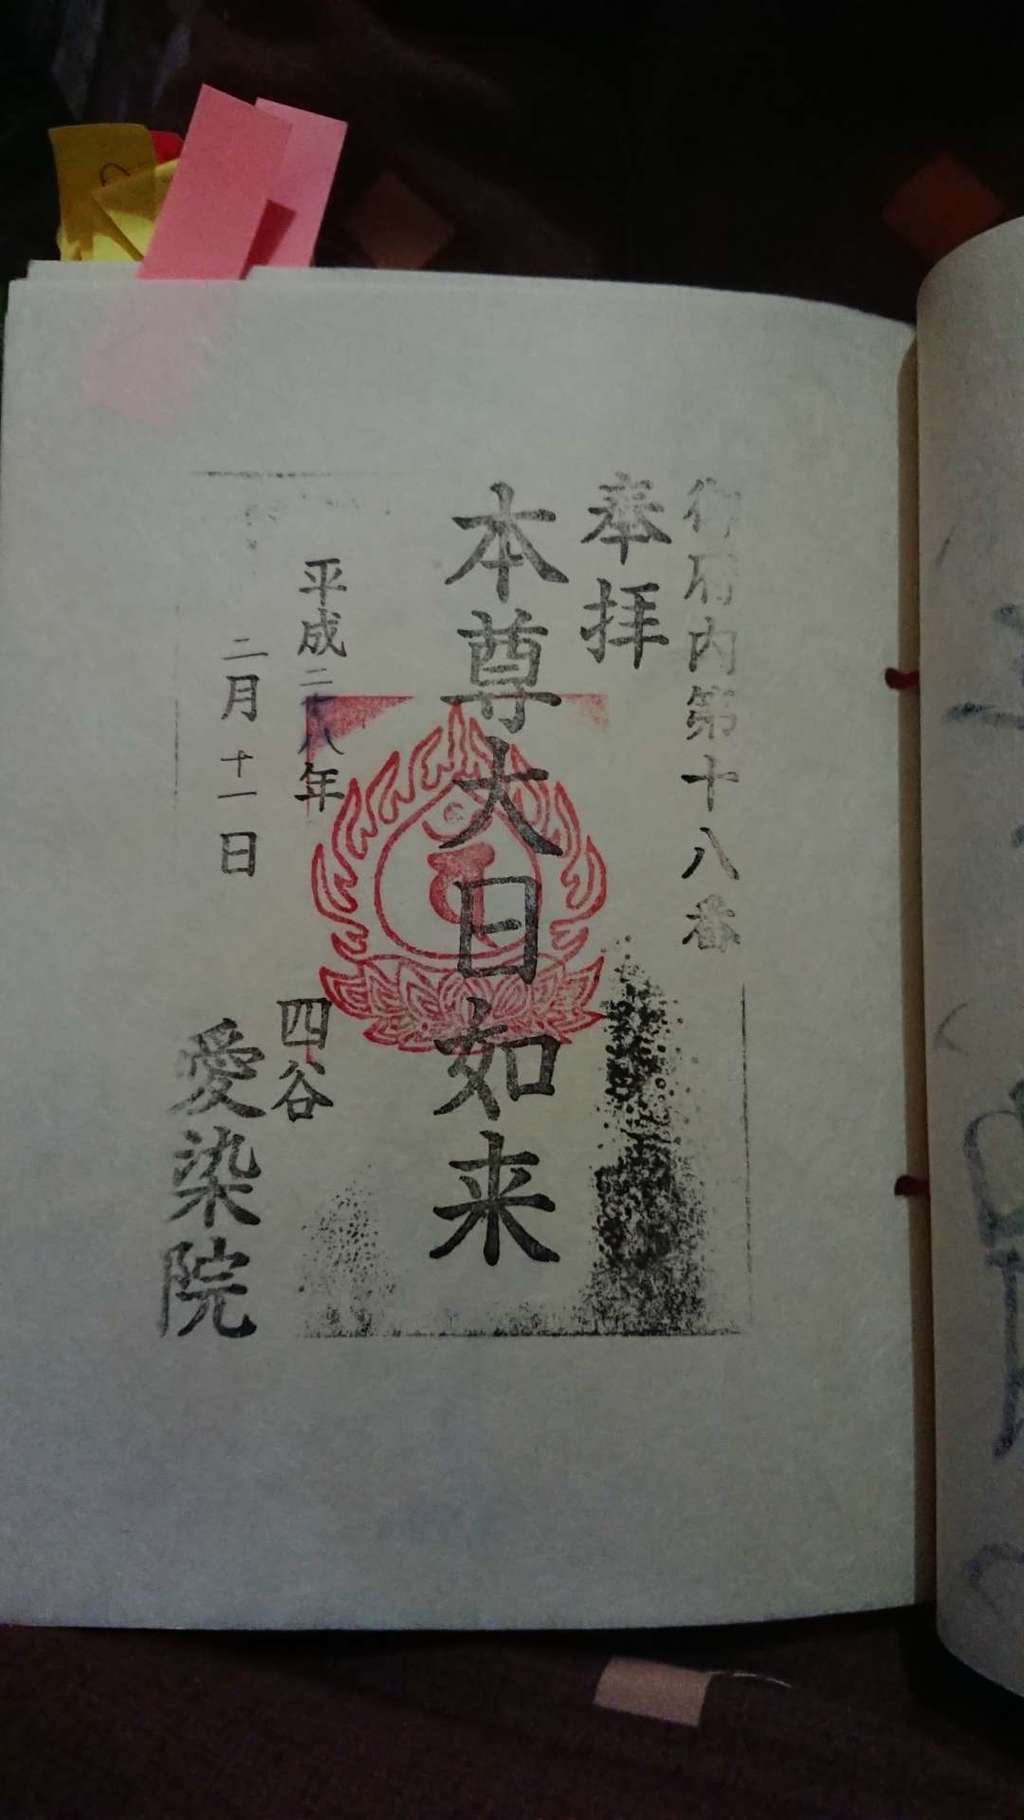 御府内第十八番
奉拝
本尊大日如来
平成二十八年
二月十一日
四谷
愛染院